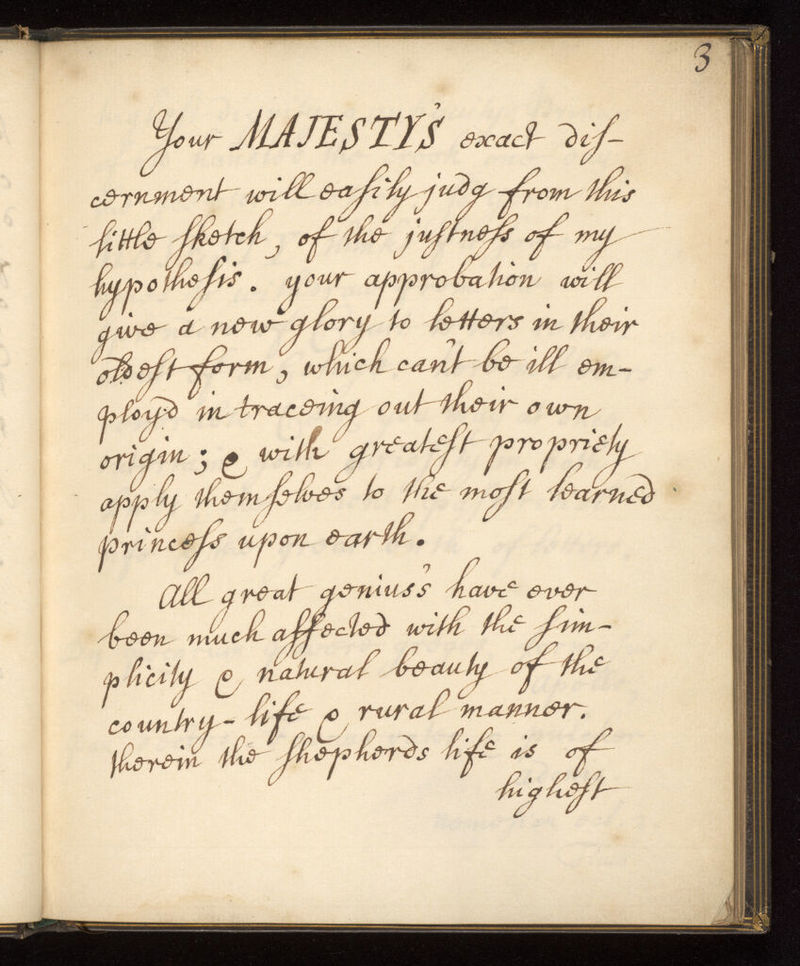 3
Your MAJESTY'S exact dis-
cernment will easily judg from this
little sketch, of the justness of my
hypothesis. your approbation will
give a new glory to letters in their
oldest form, which can't be ill em-
ploy'd in traceing out their own
origin; & with greatest propriety
apply themselves to the most learned
princess upon earth.
All great genius's have ever
been much affected with the sim-
plicity & natural beauty of the
country-life & rural manner.
therein the shepherds life is of
highest